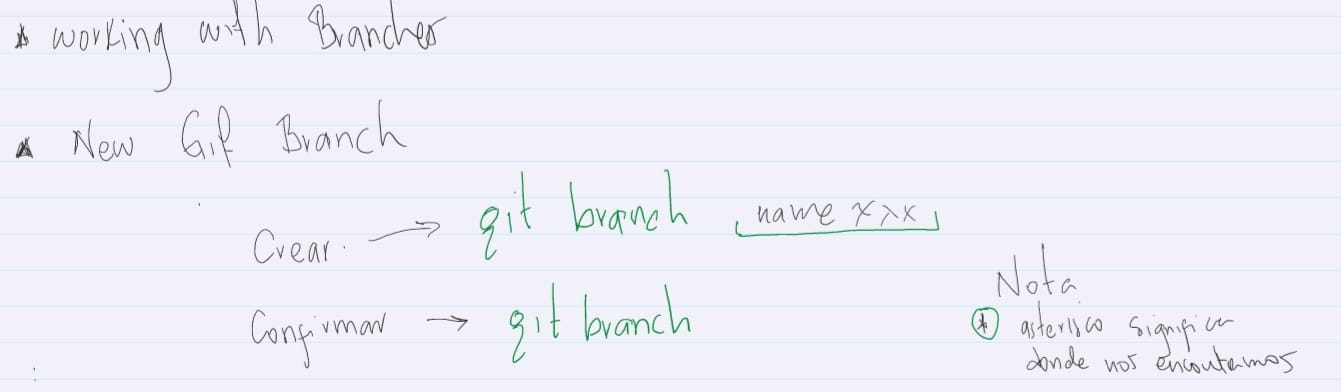 * working with Branches
* New Git Branch
Crear. → git branch [name xxx]
Confirmar → git branch
Nota
* asterisco significa
donde nos encontramos